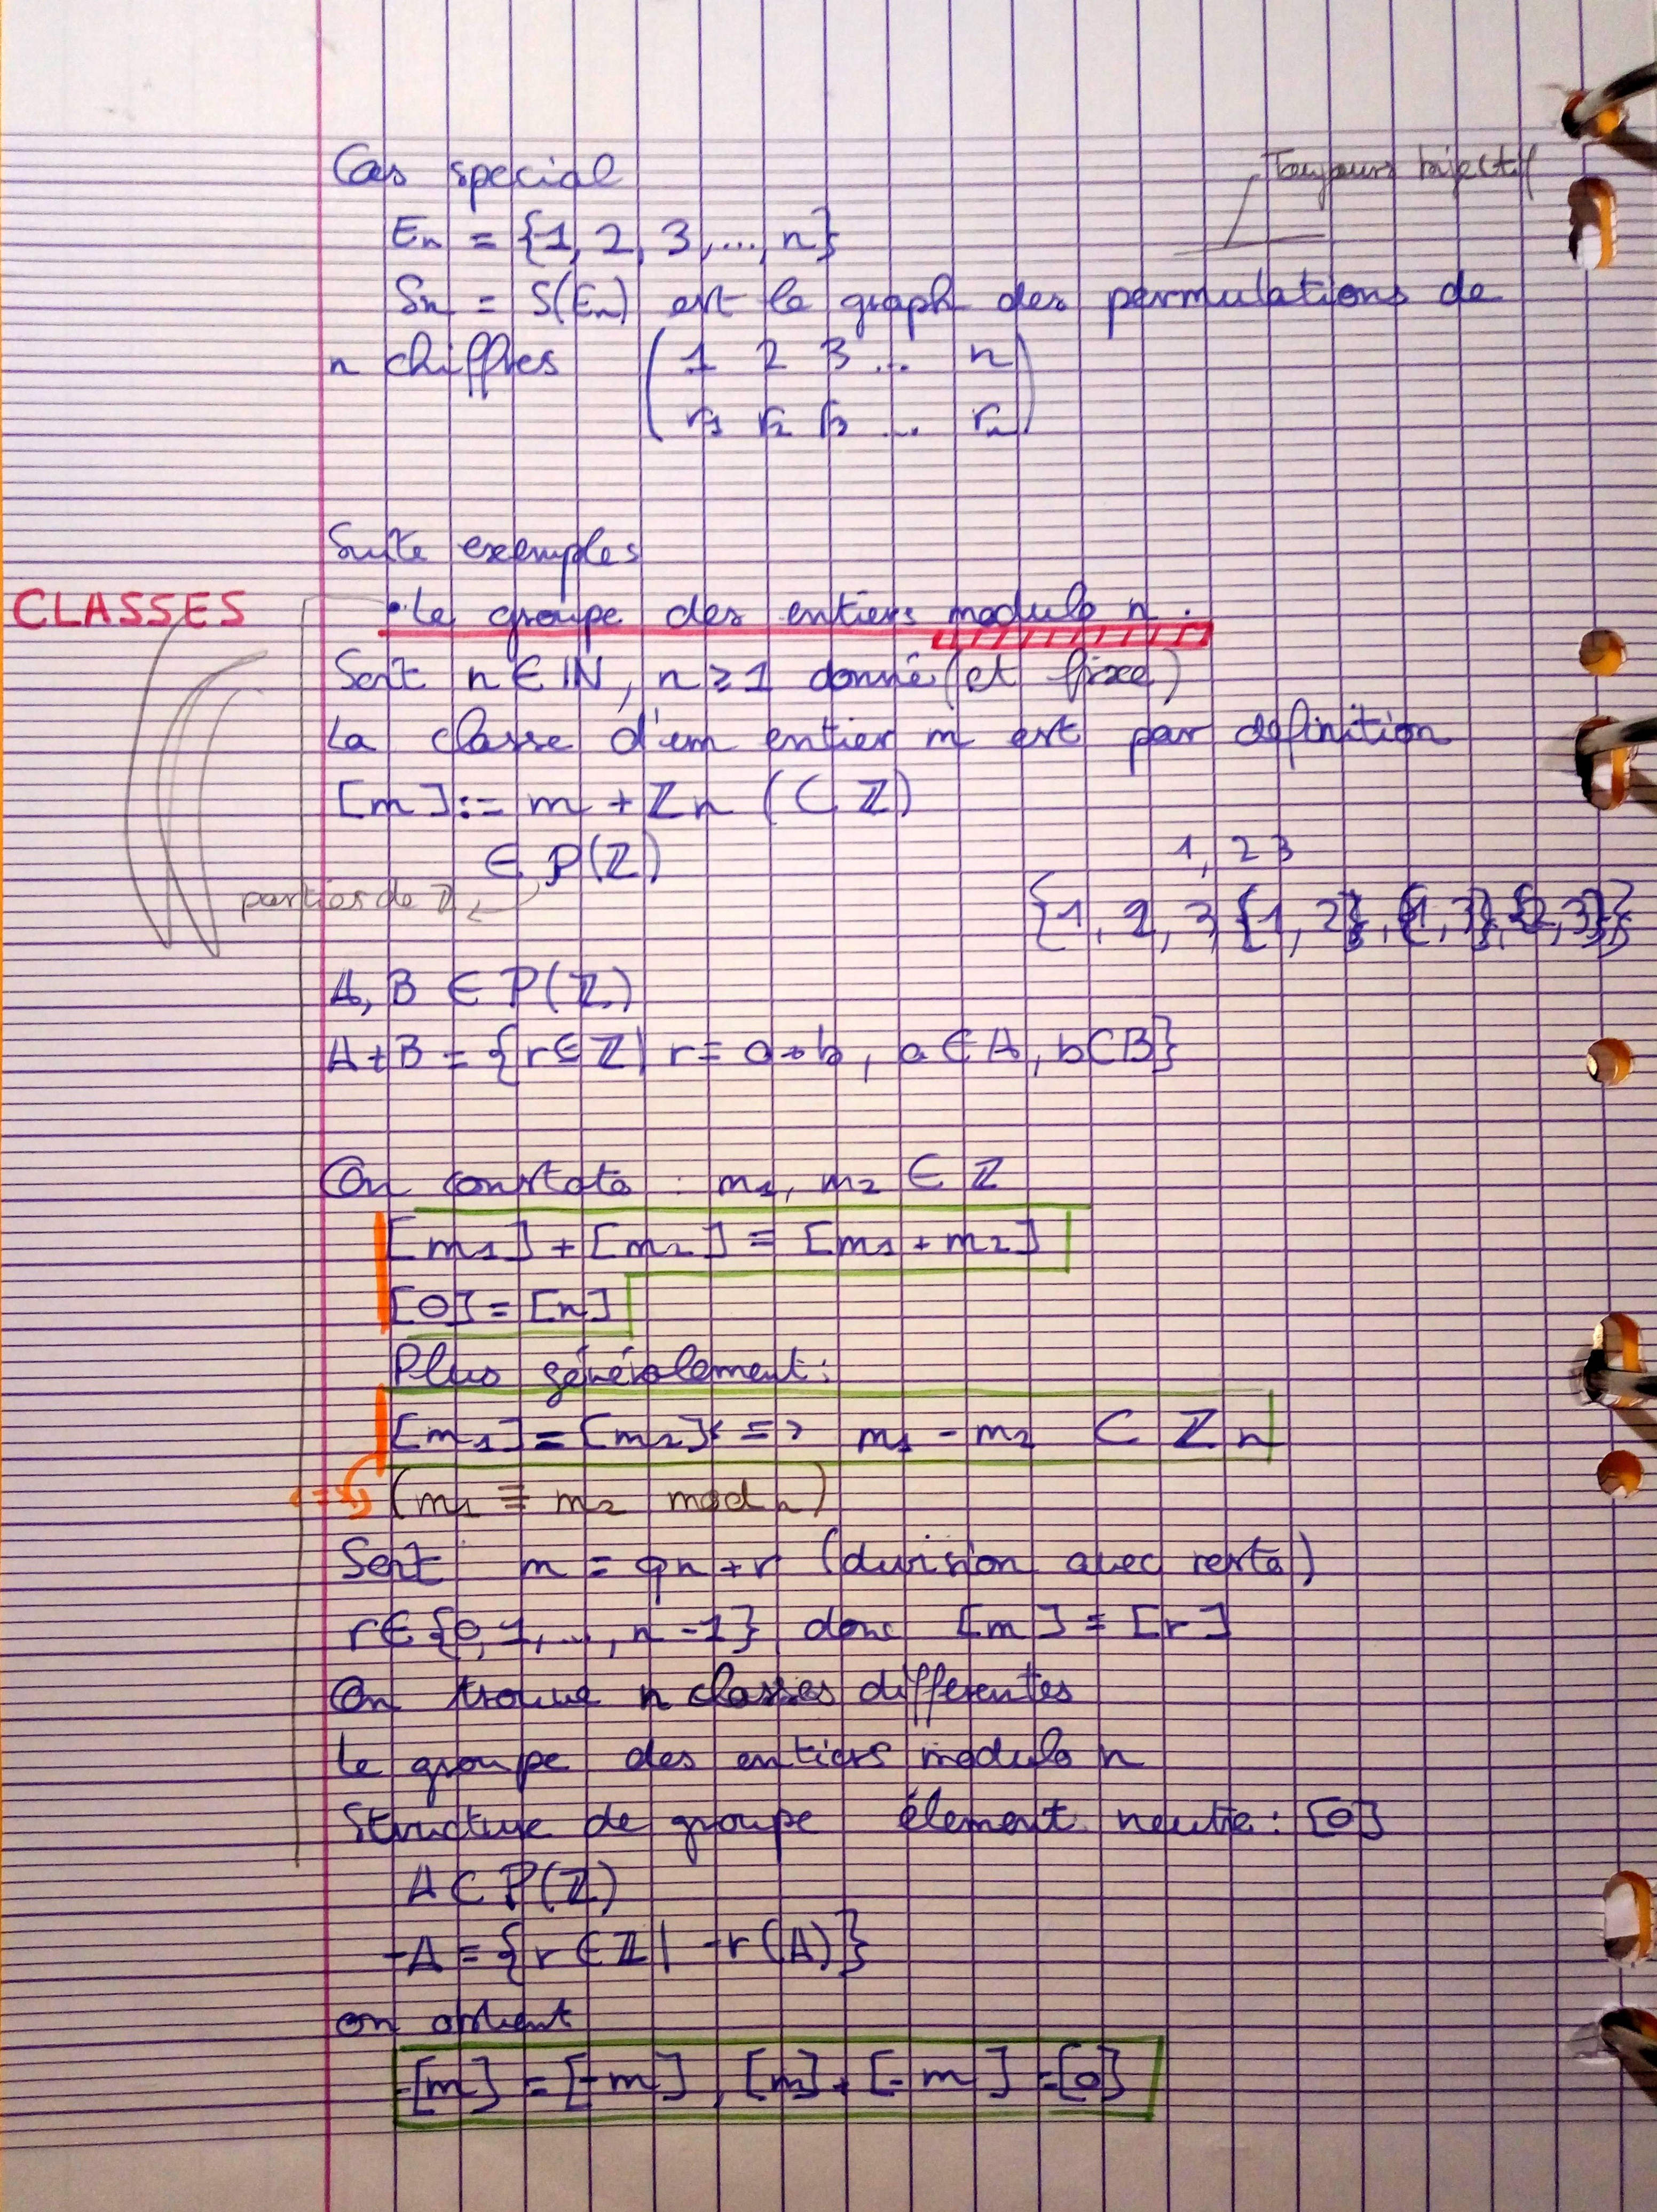 Cas special
Toujours bijectif
En = {1, 2, 3, ..., n}
Sn = S(En) est le graph des permutations de
n chiffres ( 1 2 3 ... n )
( r1 r2 r3 ... rn )
Suite exemples
CLASSES
• Le groupe des entiers modulo n.
Soit n ∈ ℕ, n ≥ 1 donné (et fixé)
La classe d'un entier m est par définition
[m] := m + ℤn (⊂ ℤ)
∈ P(ℤ)
1, 2 3
parties de ℤ
{1, 2, 3, {1, 2}, {1, 3}, {2, 3}}
A, B ∈ P(ℤ)
A + B = {r ∈ ℤ | r = a + b, a ∈ A, b ⊂ B}
On constate : m1, m2 ∈ ℤ
[m1] + [m2] = [m1 + m2]
[0] = [n]
Plus généralement :
[m1] = [m2] <=> m1 - m2 ⊂ ℤn
<=> (m1 ≡ m2 mod n)
Soit m = qn + r (division avec reste)
r ∈ {0, 1, ..., n - 1} donc [m] = [r]
On trouve n classes differentes
Le groupe des entiers modulo n
Structure de groupe élement neutre : [0]
A ⊂ P(ℤ)
-A = {r ∈ ℤ | -r (A)}
on obtient
-[m] = [-m], [m] + [-m] = [0]